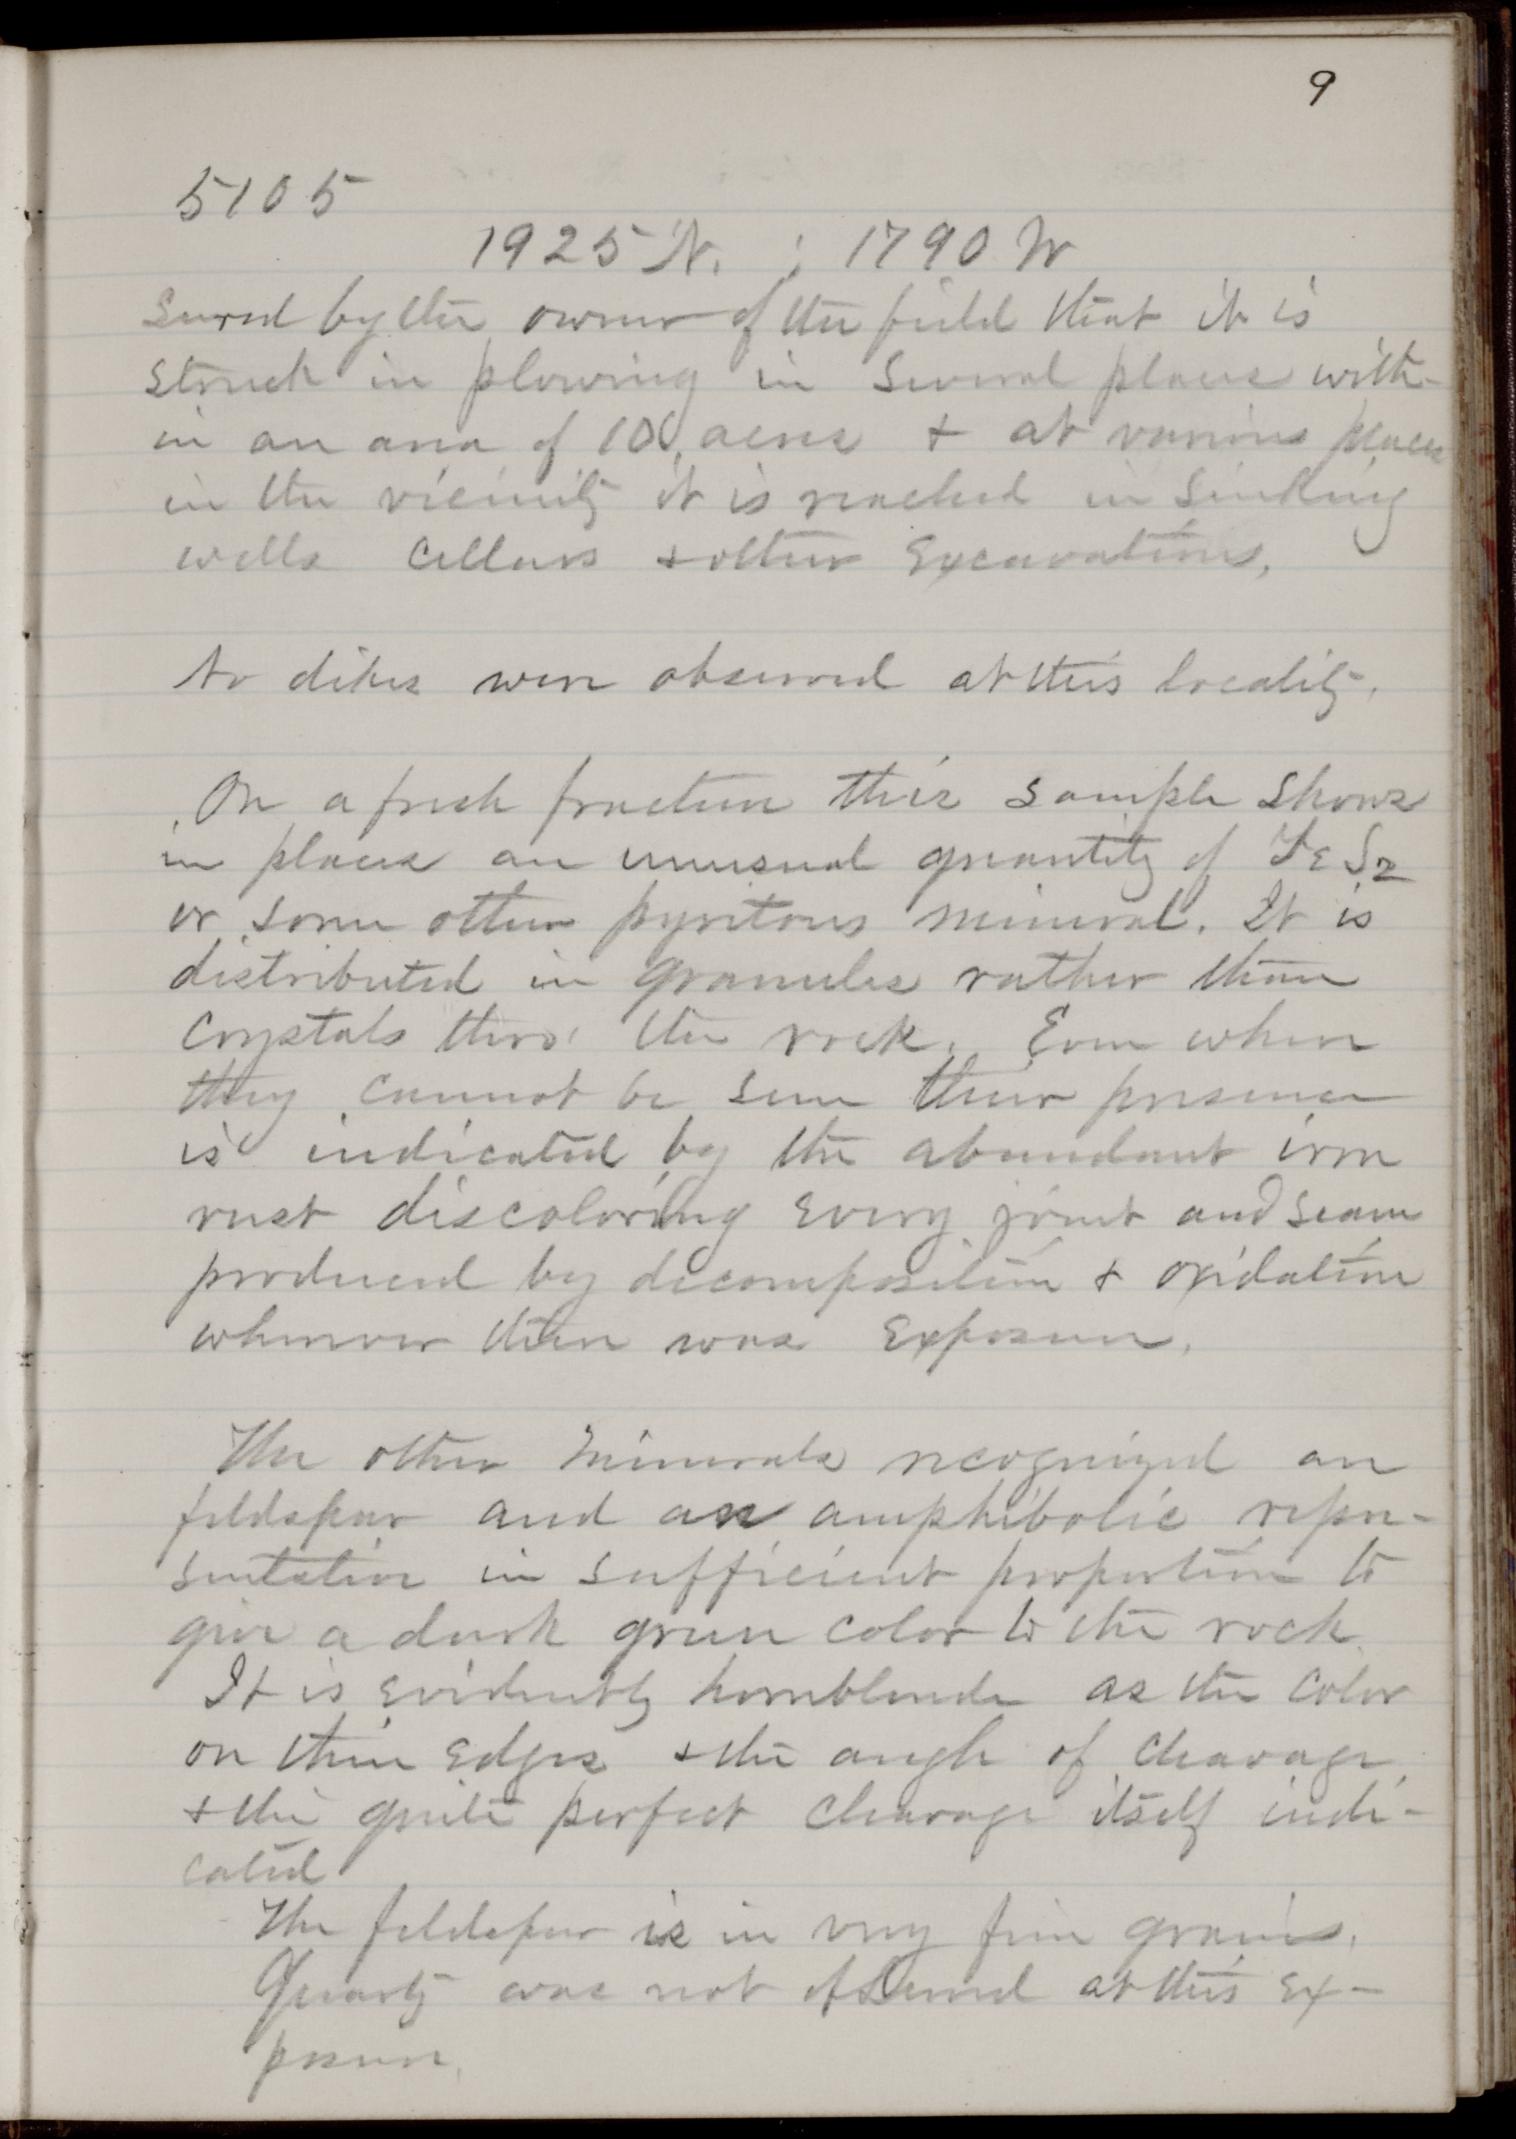 9
5105
1925 N. ; 1790 W
sured by the owner of the field that it is
struck in plowing in several places with-
in an area of 10 acres + at various places
in the vicinity it is reached in sinking
wells cellars + other excavations.
No dikes were observed at this locality.
On a fresh fracture this sample shows
in places an unusual quantity of FeS2
or some other pyritous mineral. It is
distributed in granules rather than
crystals thro' the rock. Even where
they cannot be seen their presence
is indicated by the abundant iron
rust discoloring every joint and seam
produced by decomposition + oxidation
whenever there was exposure.
The other minerals recognized are
feldspar and an amphibolic repre-
sentative in sufficient proportion to
give a dark green color to the rock
It is evidently hornblende as the color
on thin edges + the angle of cleavage
+ the quite perfect cleavage itself indi-
cated
The feldspar is in very fine grains.
Quartz was not observed at this ex-
posure.